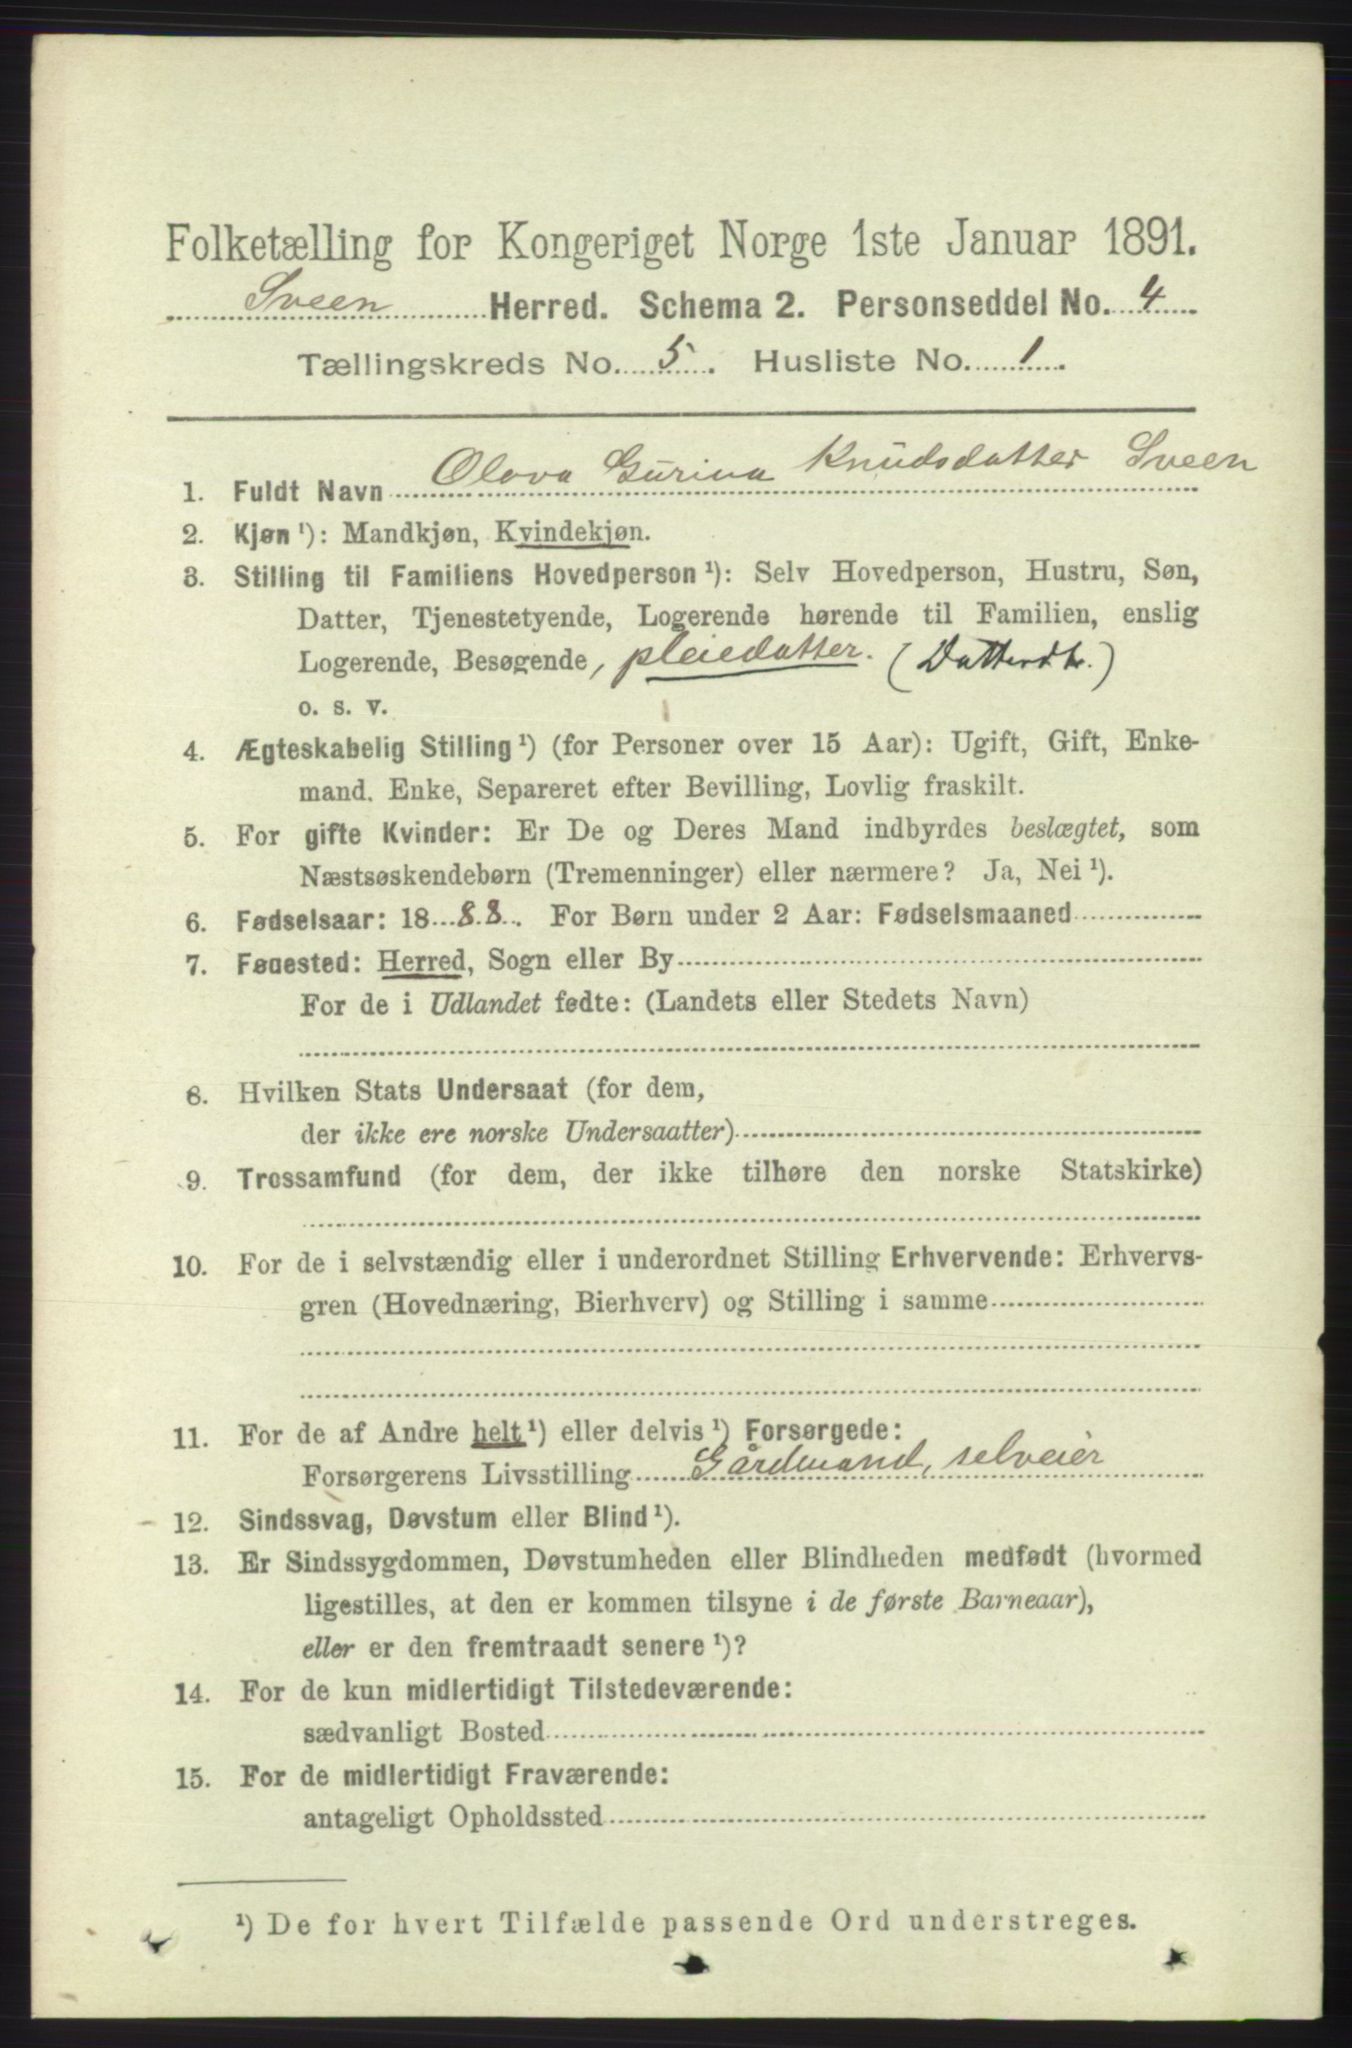 Folketælling for Kongeriget Norge 1ste Januar 1891.
Sveen Herred. Schema 2. Personseddel No. 4
Tællingskreds No. 5. Husliste No. 1.
1. Fuldt Navn Olava Gurina Knudsdatter Sveen
2. Kjøn ¹): Mandkjøn, Kvindekjøn.
3. Stilling til Familiens Hovedperson ¹): Selv Hovedperson, Hustru, Søn,
Datter, Tjenestetyende, Logerende hørende til Familien, enslig
Logerende, Besøgende, pleiedatter. (Datterdtr.)
o. s. v.
4. Ægteskabelig Stilling ¹) (for Personer over 15 Aar): Ugift, Gift, Enke-
mand. Enke, Separeret efter Bevilling, Lovlig fraskilt.
5. For gifte Kvinder: Er De og Deres Mand indbyrdes beslægtet, som
Næstsøskendebørn (Tremenninger) eller nærmere? Ja, Nei ¹).
6. Fødselsaar: 1888. For Børn under 2 Aar: Fødselsmaaned
7. Fødested: Herred, Sogn eller By
For de i Udlandet fødte: (Landets eller Stedets Navn)
8. Hvilken Stats Undersaat (for dem,
der ikke ere norske Undersaatter)
9. Trossamfund (for dem, der ikke tilhøre den norske Statskirke)
10. For de i selvstændig eller i underordnet Stilling Erhvervende: Erhvervs-
gren (Hovednæring, Bierhverv) og Stilling i samme
11. For de af Andre helt ¹) eller delvis ¹) Forsørgede:
Forsørgerens Livsstilling Gårdmand, selveier
12. Sindssvag, Døvstum eller Blind ¹).
13. Er Sindssygdommen, Døvstumheden eller Blindheden medfødt (hvormed
ligestilles, at den er kommen tilsyne i de første Barneaar),
eller er den fremtraadt senere ¹)?
14. For de kun midlertidigt Tilstedeværende:
sædvanligt Bosted
15. For de midlertidigt Fraværende:
antageligt Opholdssted
¹) De for hvert Tilfælde passende Ord understreges.